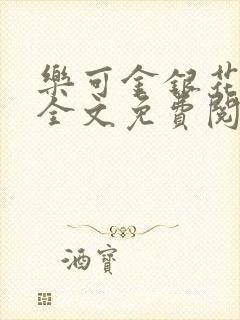 樂可金銀花
全文免費閱
酒寶